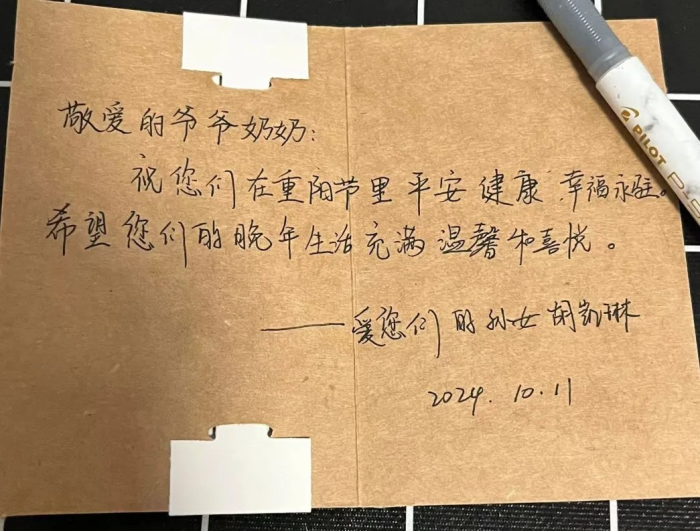 敬爱的爷爷奶奶：
祝您们在重阳节里平安健康 幸福永驻。
希望您们的晚年生活充满温馨和喜悦。
——爱您们的孙女胡凯琳
2024.10.11
PILOT